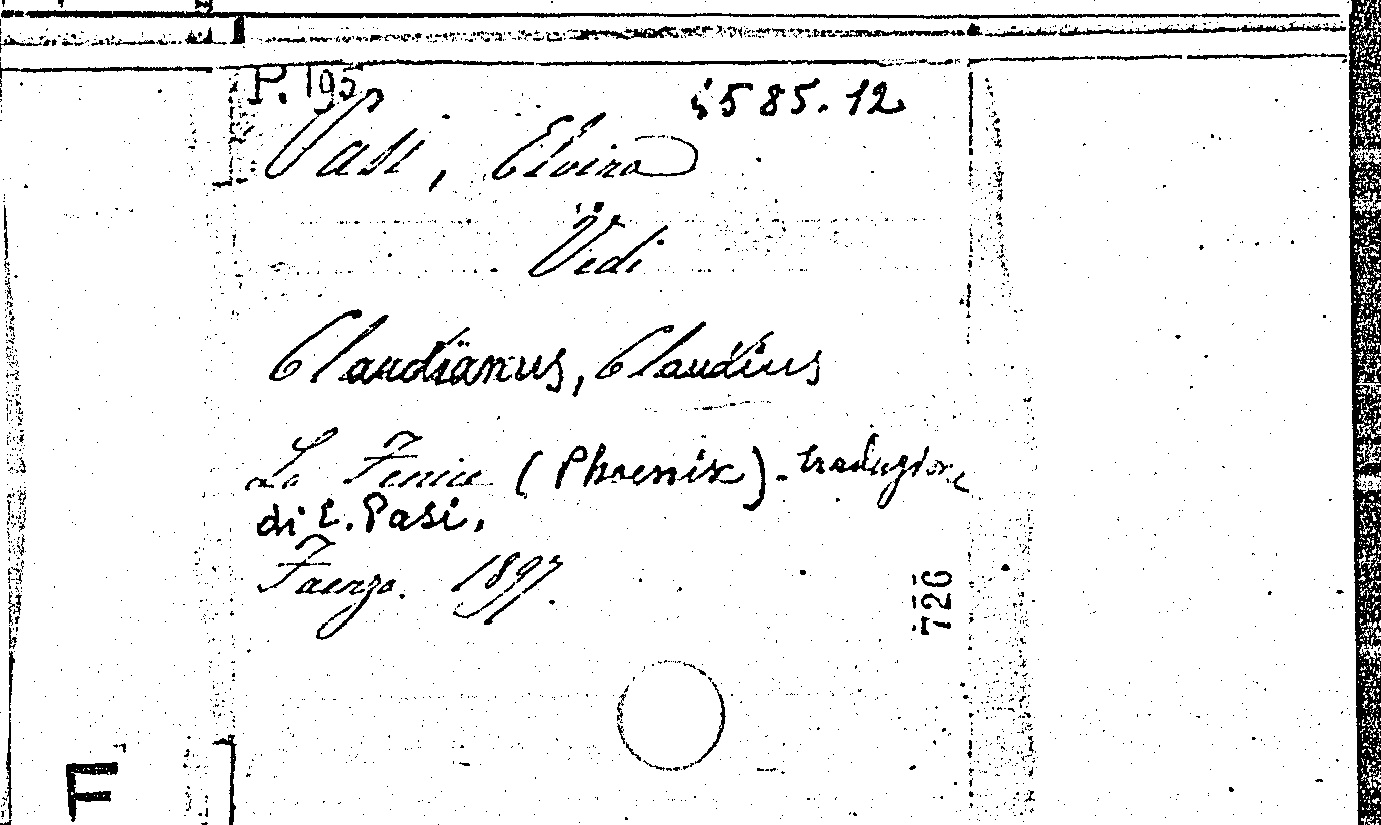 P. 195
585.12
Pasi, Elvira
Vedi
Claudianus, Claudius
La Fenice (Phoenix). traduzione
di E. Pasi.
Faenza. 1897.
726
F